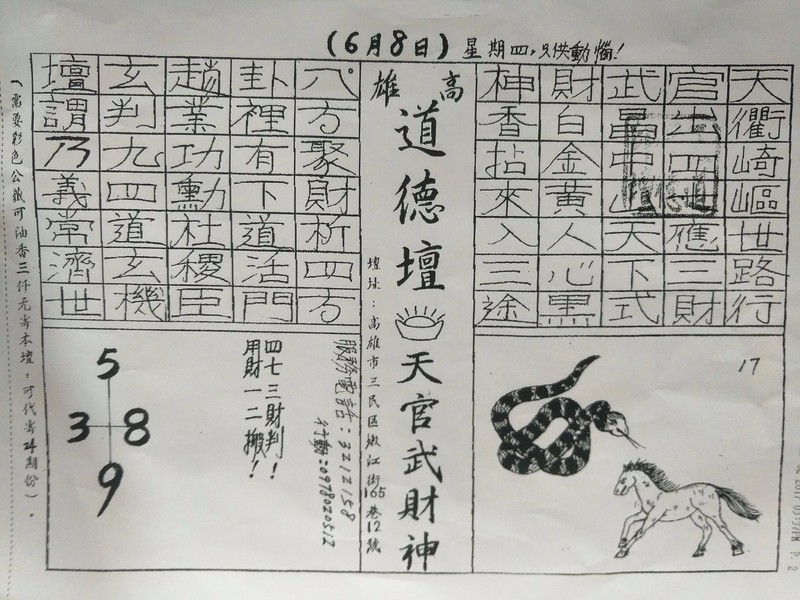 (6月8日) 星期四,只供動惱!
天衢崎嶇世路行
官 四地應三財
武 中 天下式
財白金黃人心黑
神香拈來入三途
高雄
道德壇
天官武財神
壇址:高雄市三民區嫩江街165巷12號
八方聚財析四方
卦裡有下道活門
趙業功勳社稷臣
玄判九四道玄機
壇謂乃義常濟世
17
服務電話:3212158
行動:0978020512
四七三財判!
用財一二搬!
5
3 8
9
(需要彩色公籤可油香三仟元寄本壇,可代寄24期份)。